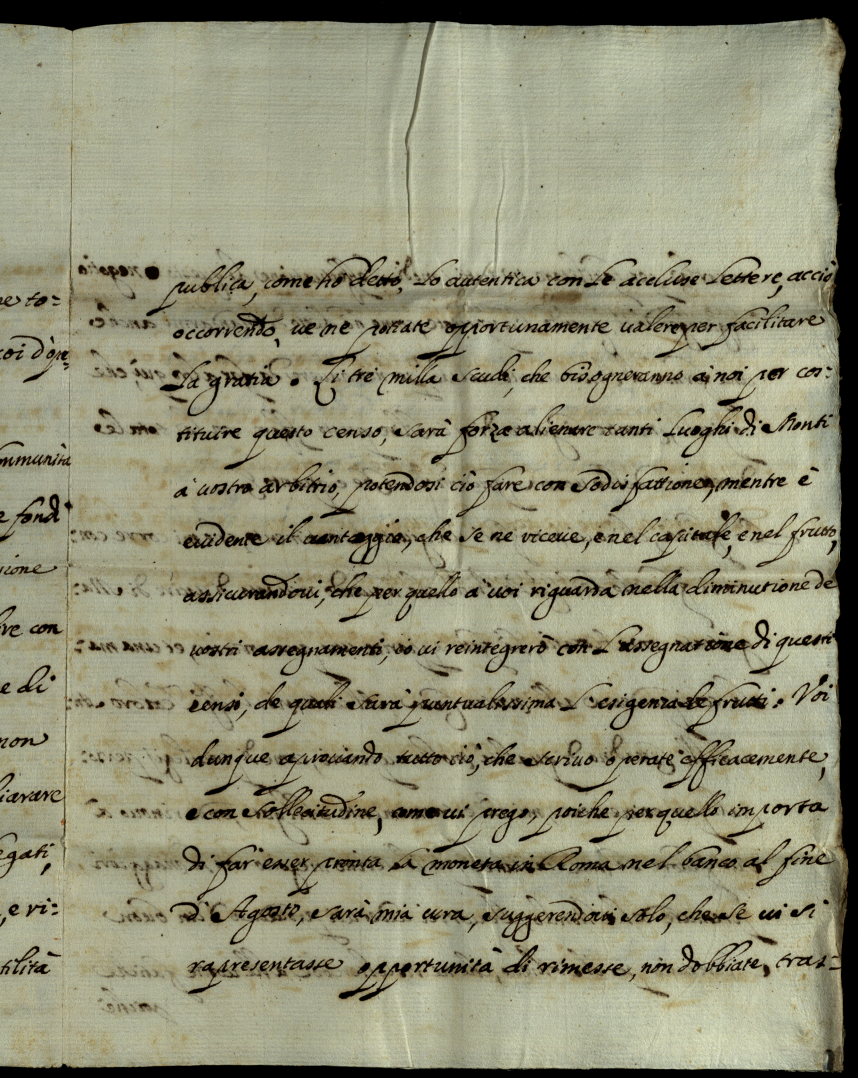 ne to=
voi d'que=
ommunità
e fondi
zione
lre con
e di
non
liarare
egati,
, e ri=
tilità
publica, come hò detto, Lo autentica con Le accluse Lettere, acciò
occorrendo, ve ne potiate opportunamente valere per facilitare
La gratia. Li trè milla Scudi, che bisogneranno à noi per cos=
tituire questo censo, sarà forza alienare tanti Luoghi di Monti
à vostro arbitrio, potendosi ciò fare con Sodisfattione, mentre è
evidente il vantaggio, che se ne riceve, e nel capitale, e nel frutto,
assicurandovi, che per quello a' voi riguarda nella diminutione de
vostri assegnamenti, io vi reintegrerò con L'assegnatione di questi
censi, de quali sarà puntualissima L'esigenza de frutti. Voi
dunque aprociando tutto ciò, che scrivo operate efficacemente,
e con Sollecitudine, come vi prego, poiche per quello importa
di far esser pronta La moneta in Roma nel banco al fine
d'Agosto, sarà mia cura, suggerendovi solo, che se vi si
rapresentasse opportunità di rimesse, non dobbiate tras=